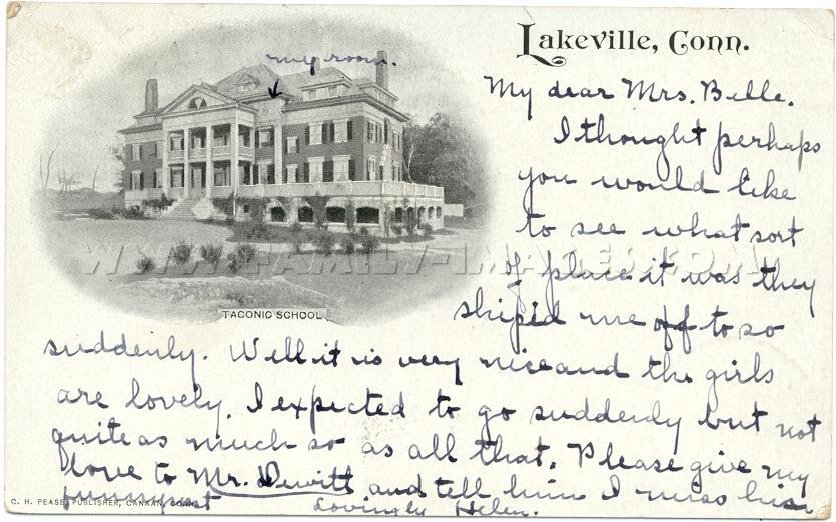 Lakeville, Conn.
my room.
My dear Mrs. Belle.
I thought perhaps
you would like
to see what sort
of place it was they
shiped me off to so
suddenly. Well it is very nice and the girls
are lovely. I expected to go suddenly but not
quite as much so as all that. Please give my
love to Mr. Dewitt and tell him I miss his
Lovingly Helen.
TACONIC SCHOOL
C. H. PEASE, PUBLISHER, CANAAN, CONN.
WWW.FAMILY-IMAGES.COM